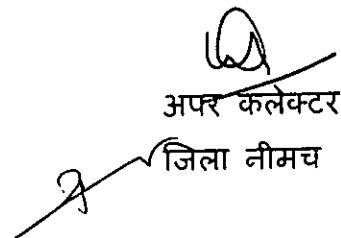 अपर कलेक्टर
जिला नीमच